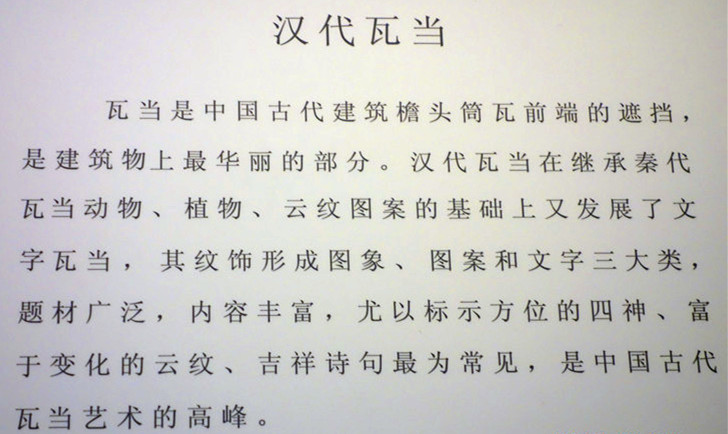 汉代瓦当
瓦当是中国古代建筑檐头筒瓦前端的遮挡，
是建筑物上最华丽的部分。汉代瓦当在继承秦代
瓦当动物、植物、云纹图案的基础上又发展了文
字瓦当，其纹饰形成图象、图案和文字三大类，
题材广泛，内容丰富，尤以标示方位的四神、富
于变化的云纹、吉祥诗句最为常见，是中国古代
瓦当艺术的高峰。